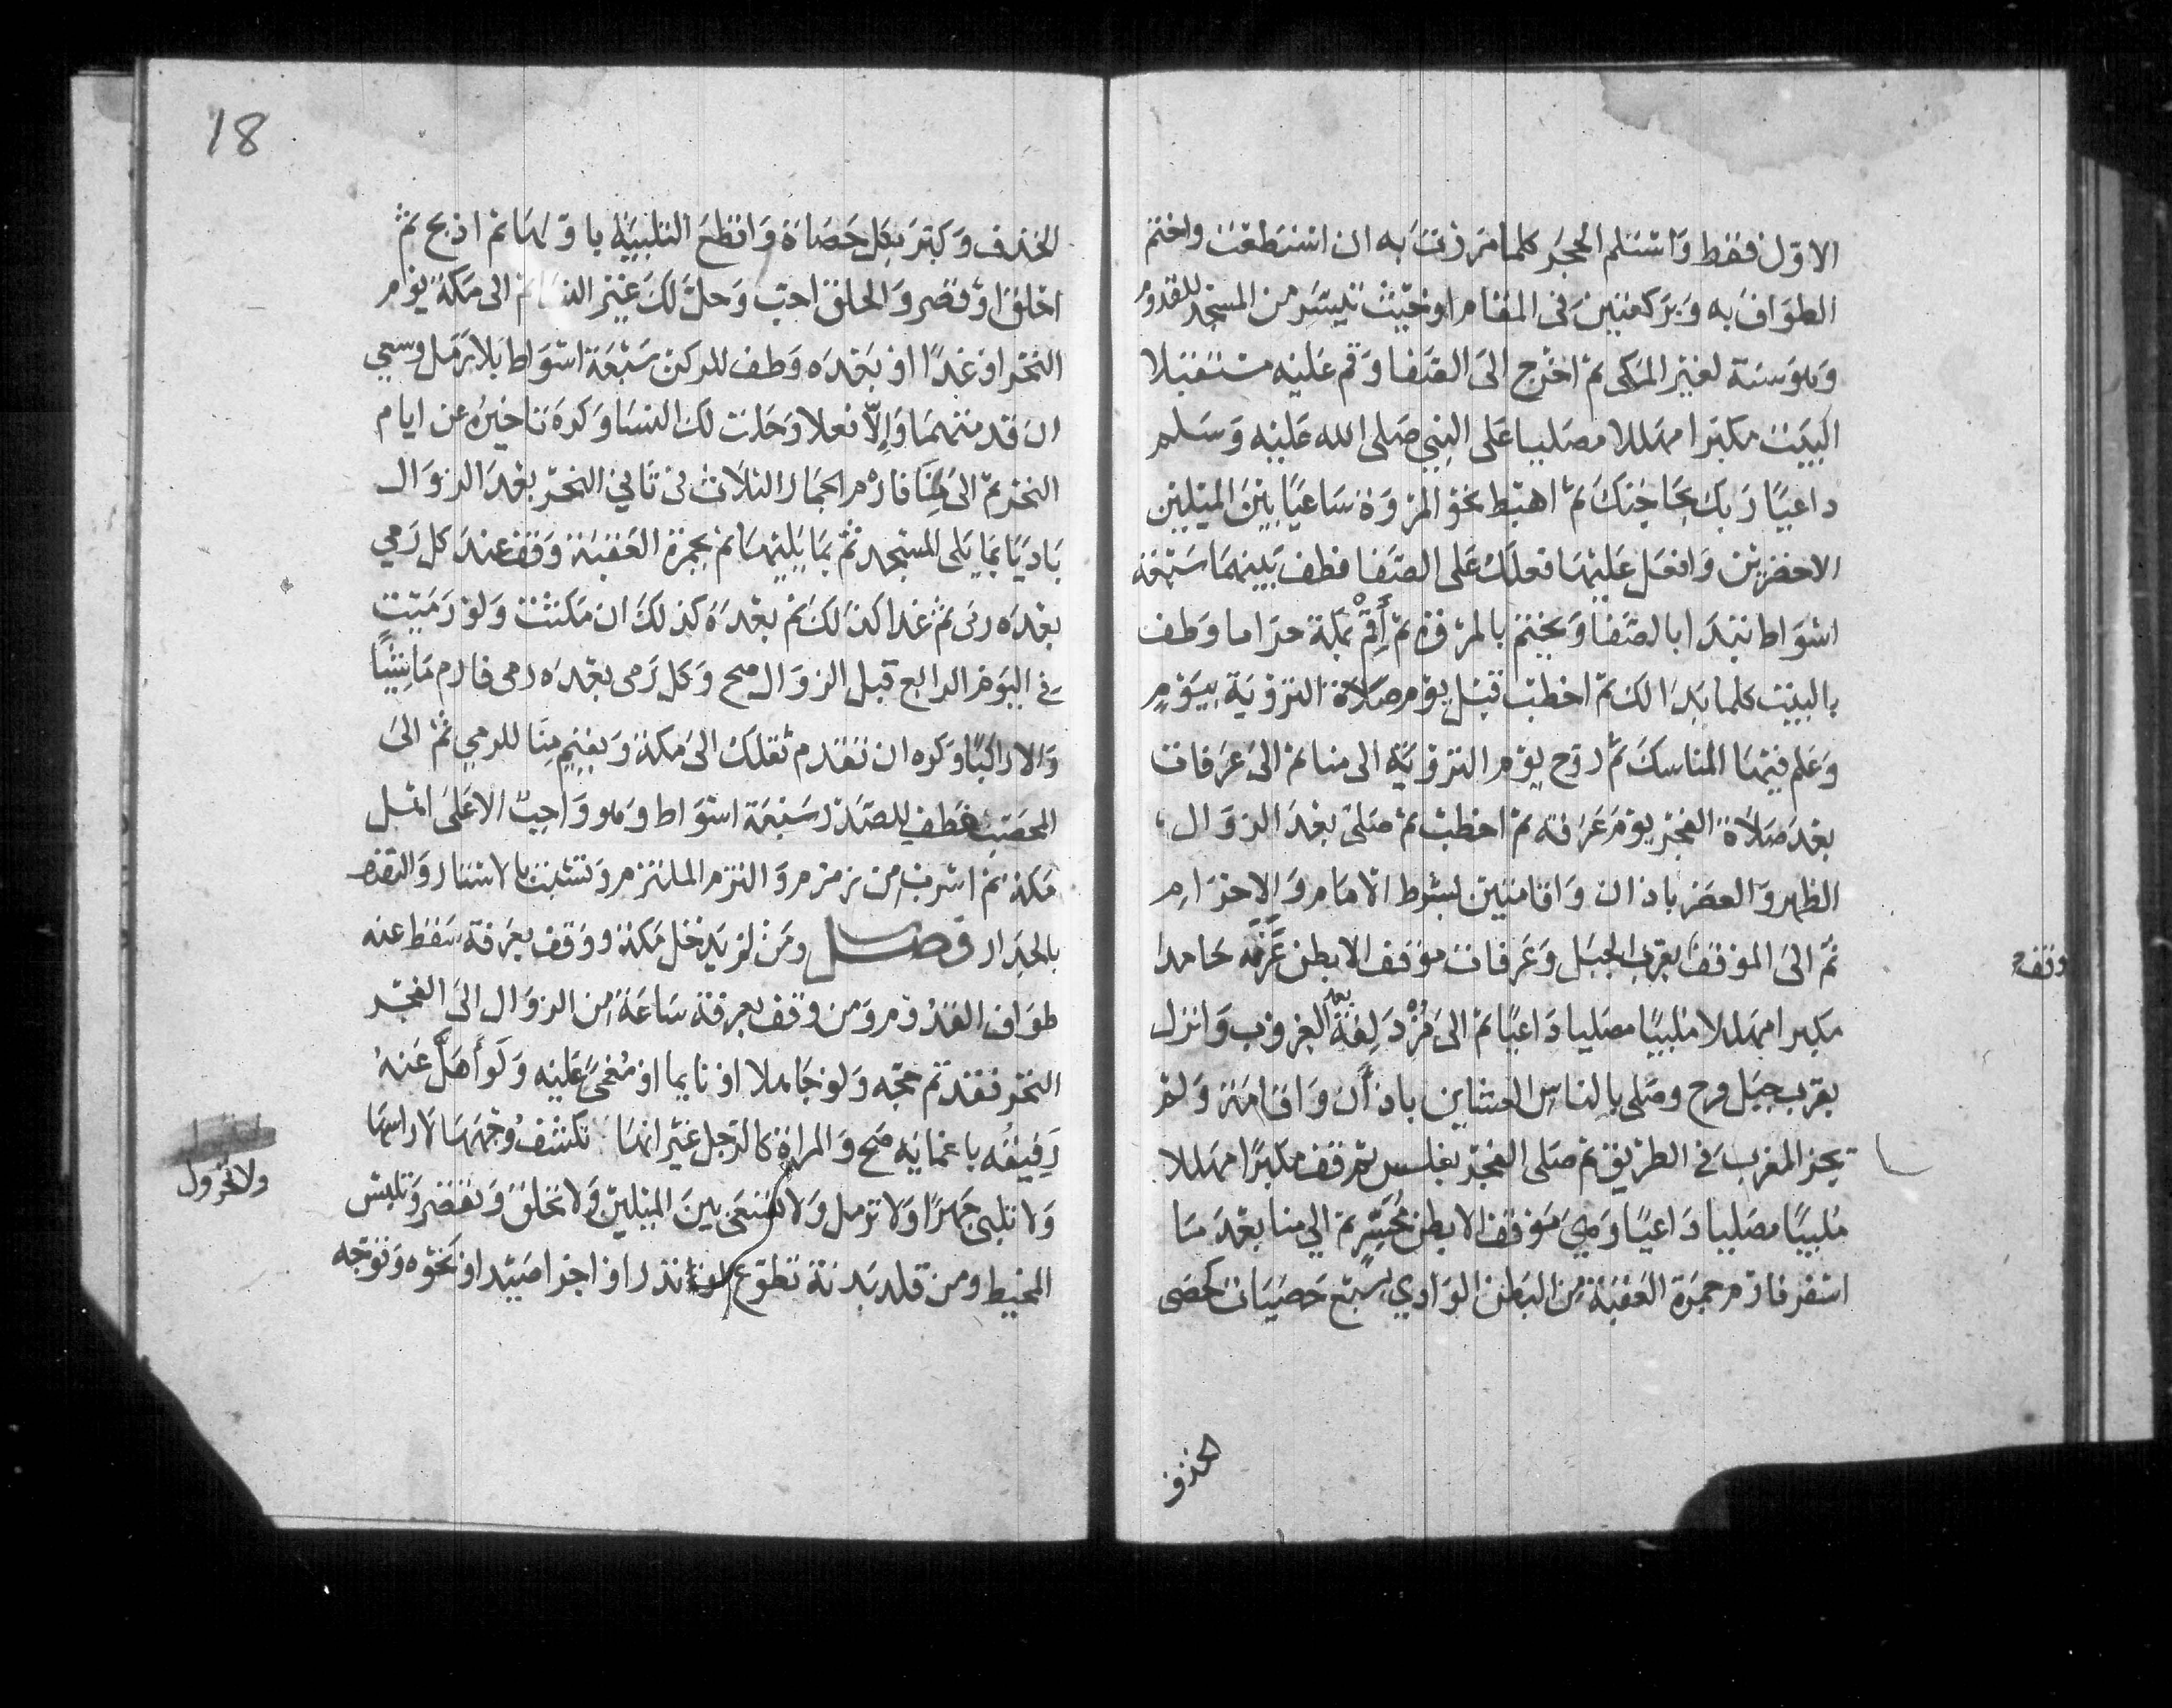 الاول فقط واستلم الحجر كلما مررت به ان استطعت واختم
الطواف به وبركعتين في المقام او حيث تيسر من المسجد للقدوم
وهو سنة لغير المكي ثم اخرج الى الصفا وقم عليه مستقبلا
البيت مكبرا مهللا مصليا على النبي صلى الله عليه وسلم
داعيا ربك بحاجتك ثم اهبط نحو المروة ساعيا بين الميلين
الاخضرين وافعل عليها فعلك على الصفا فطف بينهما سبعة
اشواط تبتدا بالصفا وتختم بالمروة ثم أقم بمكة حراما وطف
بالبيت كلما بدا لك ثم اخطب قبل يوم صلاة التروية بيوم
وعلم فيها المناسك ثم روح يوم التروية الى منا ثم الى عرفات
بعد صلاة الفجر يوم عرفة ثم اخطب ثم صلى بعد الزوال
الظهر والعصر باذان واقامتين بشرط الامام والاحرام
ثم الى الموقف بقرب الجبل وعرفات موقف الا بطن عرنه حامدا
وقف
مكبرا مهللا ملبيا مصليا داعيا ثم الى مزدلفة بعد الغروب وانزل
بقرب جبل قزح وصلى بالناس العشاين باذان واقامة ولم
يجز المغرب في الطريق ثم صلى الفجر بغلس ثم قف مكبرا مهللا
ملبيا مصليا داعيا وهي موقف الا بطن محسر ثم الى منا بعد ما
اسفر فارم جمرة العقبة من البطن الوادي بسبع حصيات كحصى
الخذف
18
الخذف وكبر بكل حصاة واقطع التلبية باولها ثم اذبح ثم
احلق او قصر والحلق احب وحل لك غير النسا ثم الى مكة يوم
النحر او غدا او بعده وطف للركن سبعة اشواط بلا رمل وسعي
ان قدمتهما وإلا فعلا وحلت لك النسا وكره تاخيره عن ايام
النحر ثم الى منا فارم الجمار الثلاث في ثاني النحر بعد الزوال
باديا بما يلي المسجد ثم بما يليها ثم بجمرة العقبة وقف عند كل رمي
بعده رمى ثم غدا كذالك ثم بعده كذلك ان مكثت ولو رميت
في اليوم الرابع قبل الزوال صح وكل رمى بعده رمى فارم ماشيا
والا راكبا وكره ان تقدم ثقلك الى مكة وتقيم منا للرمي ثم الى
المحصب فطف للصدر سبعة اشواط وهو واجب الا على اهل
مكة ثم اشرب من زمزم والتزم الملتزم وتشبث بالاستار والتصق
بالجدار فصل ومن لم يدخل مكة ووقف بعرفة سقط عنه
طواف القدوم ومن وقف بعرفة ساعة من الزوال الى الفجر
النحر فقد تم حجه ولو جاهلا او نايما او مغمى عليه ولو أهل عنه
رفيقه باغمايه صح والمراة كالرجل غير انها تكشف وجهها لا راسها
ولا تلبي جهرا ولا ترمل ولا تسعى بين الميلين ولا تحلق وتقصر وتلبس
ولا تهرول
المخيط ومن قلد بدنة تطوع او نذر او اجزا صيد او نحوه وتوجه